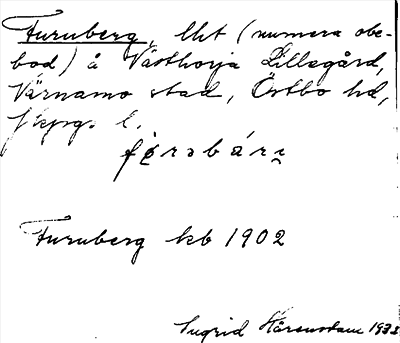 Furuberg, lht (numera obe-
bod) å Västhorja Lillegård,
Värnamo stad, Östbo hd,
Jkpgs l.
Furuberg kb 1902
Ingrid 1933